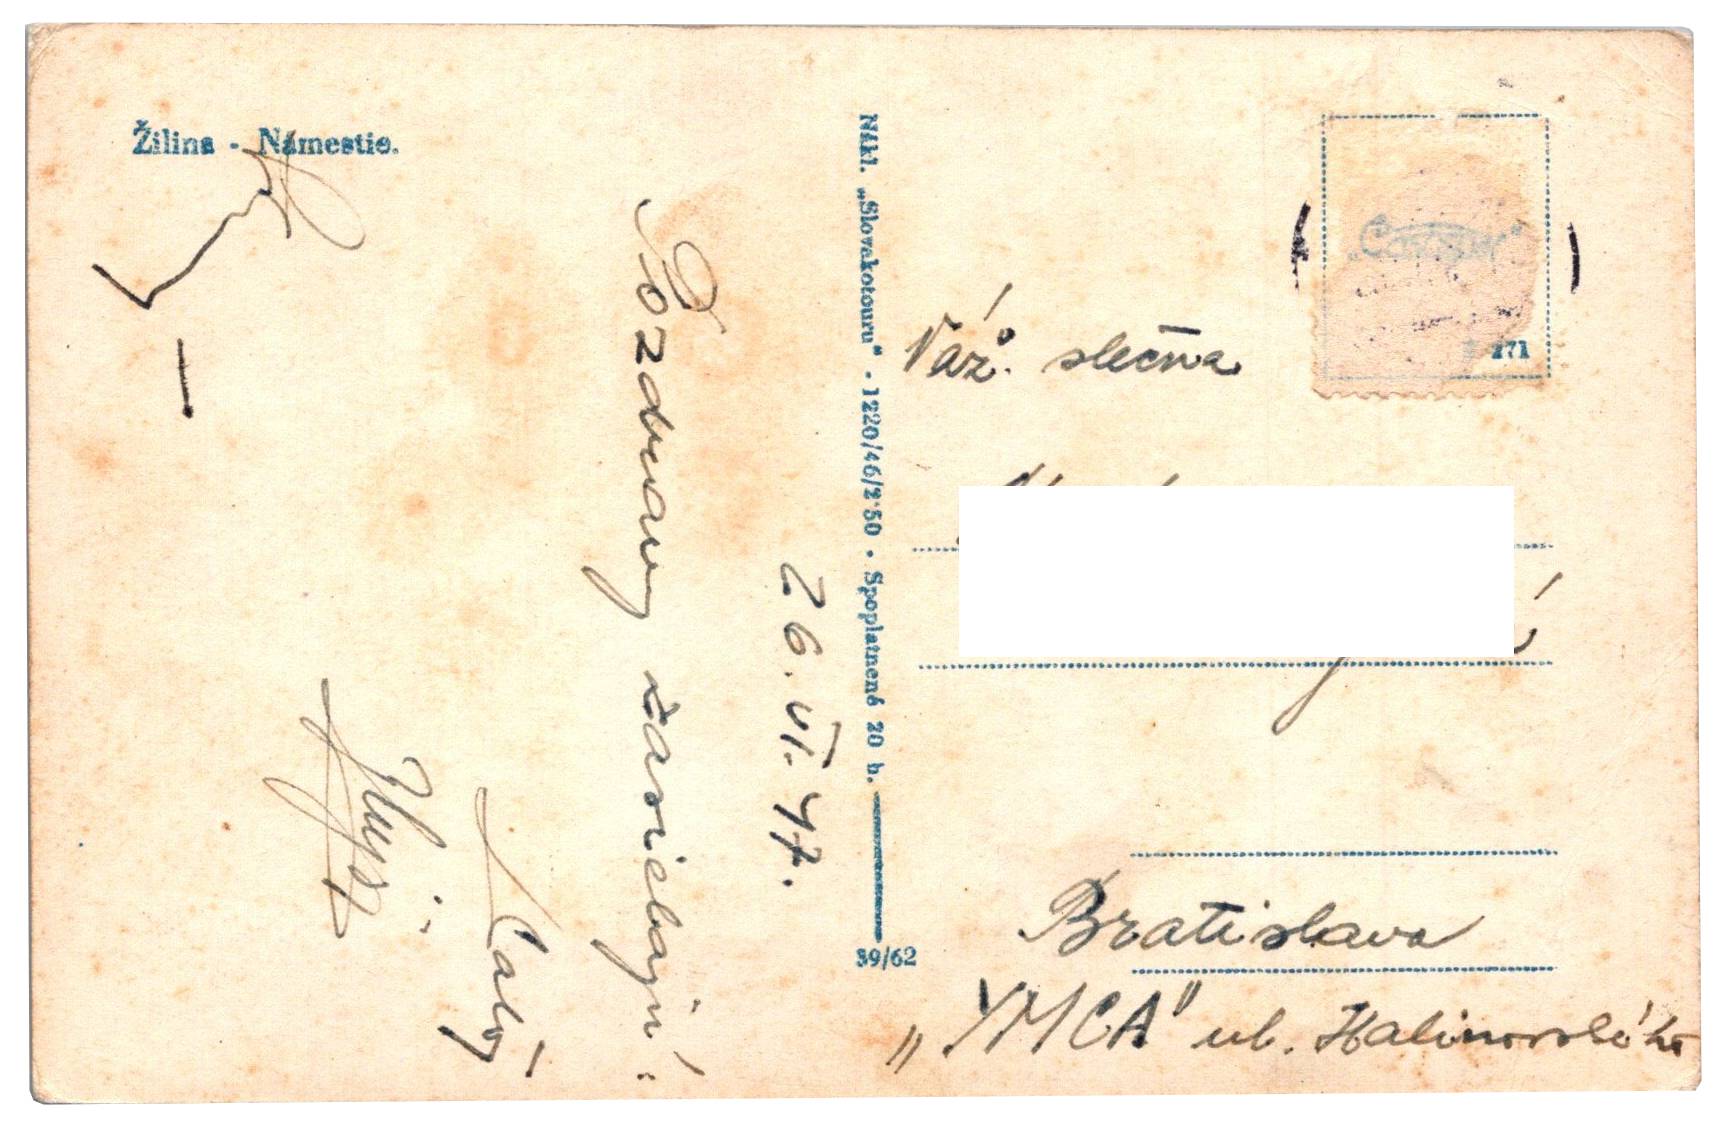 Žilina - Námestie.
26. VI. 47.
Pozdravy zasielajú:
Laló
Nákl. „Slovakotouru“ - 1220/46/2·50 · Spoplatnené 20 h.
39/62
171
Váž. slečna
Bratislava
„YMCA" ul. Kalinovského